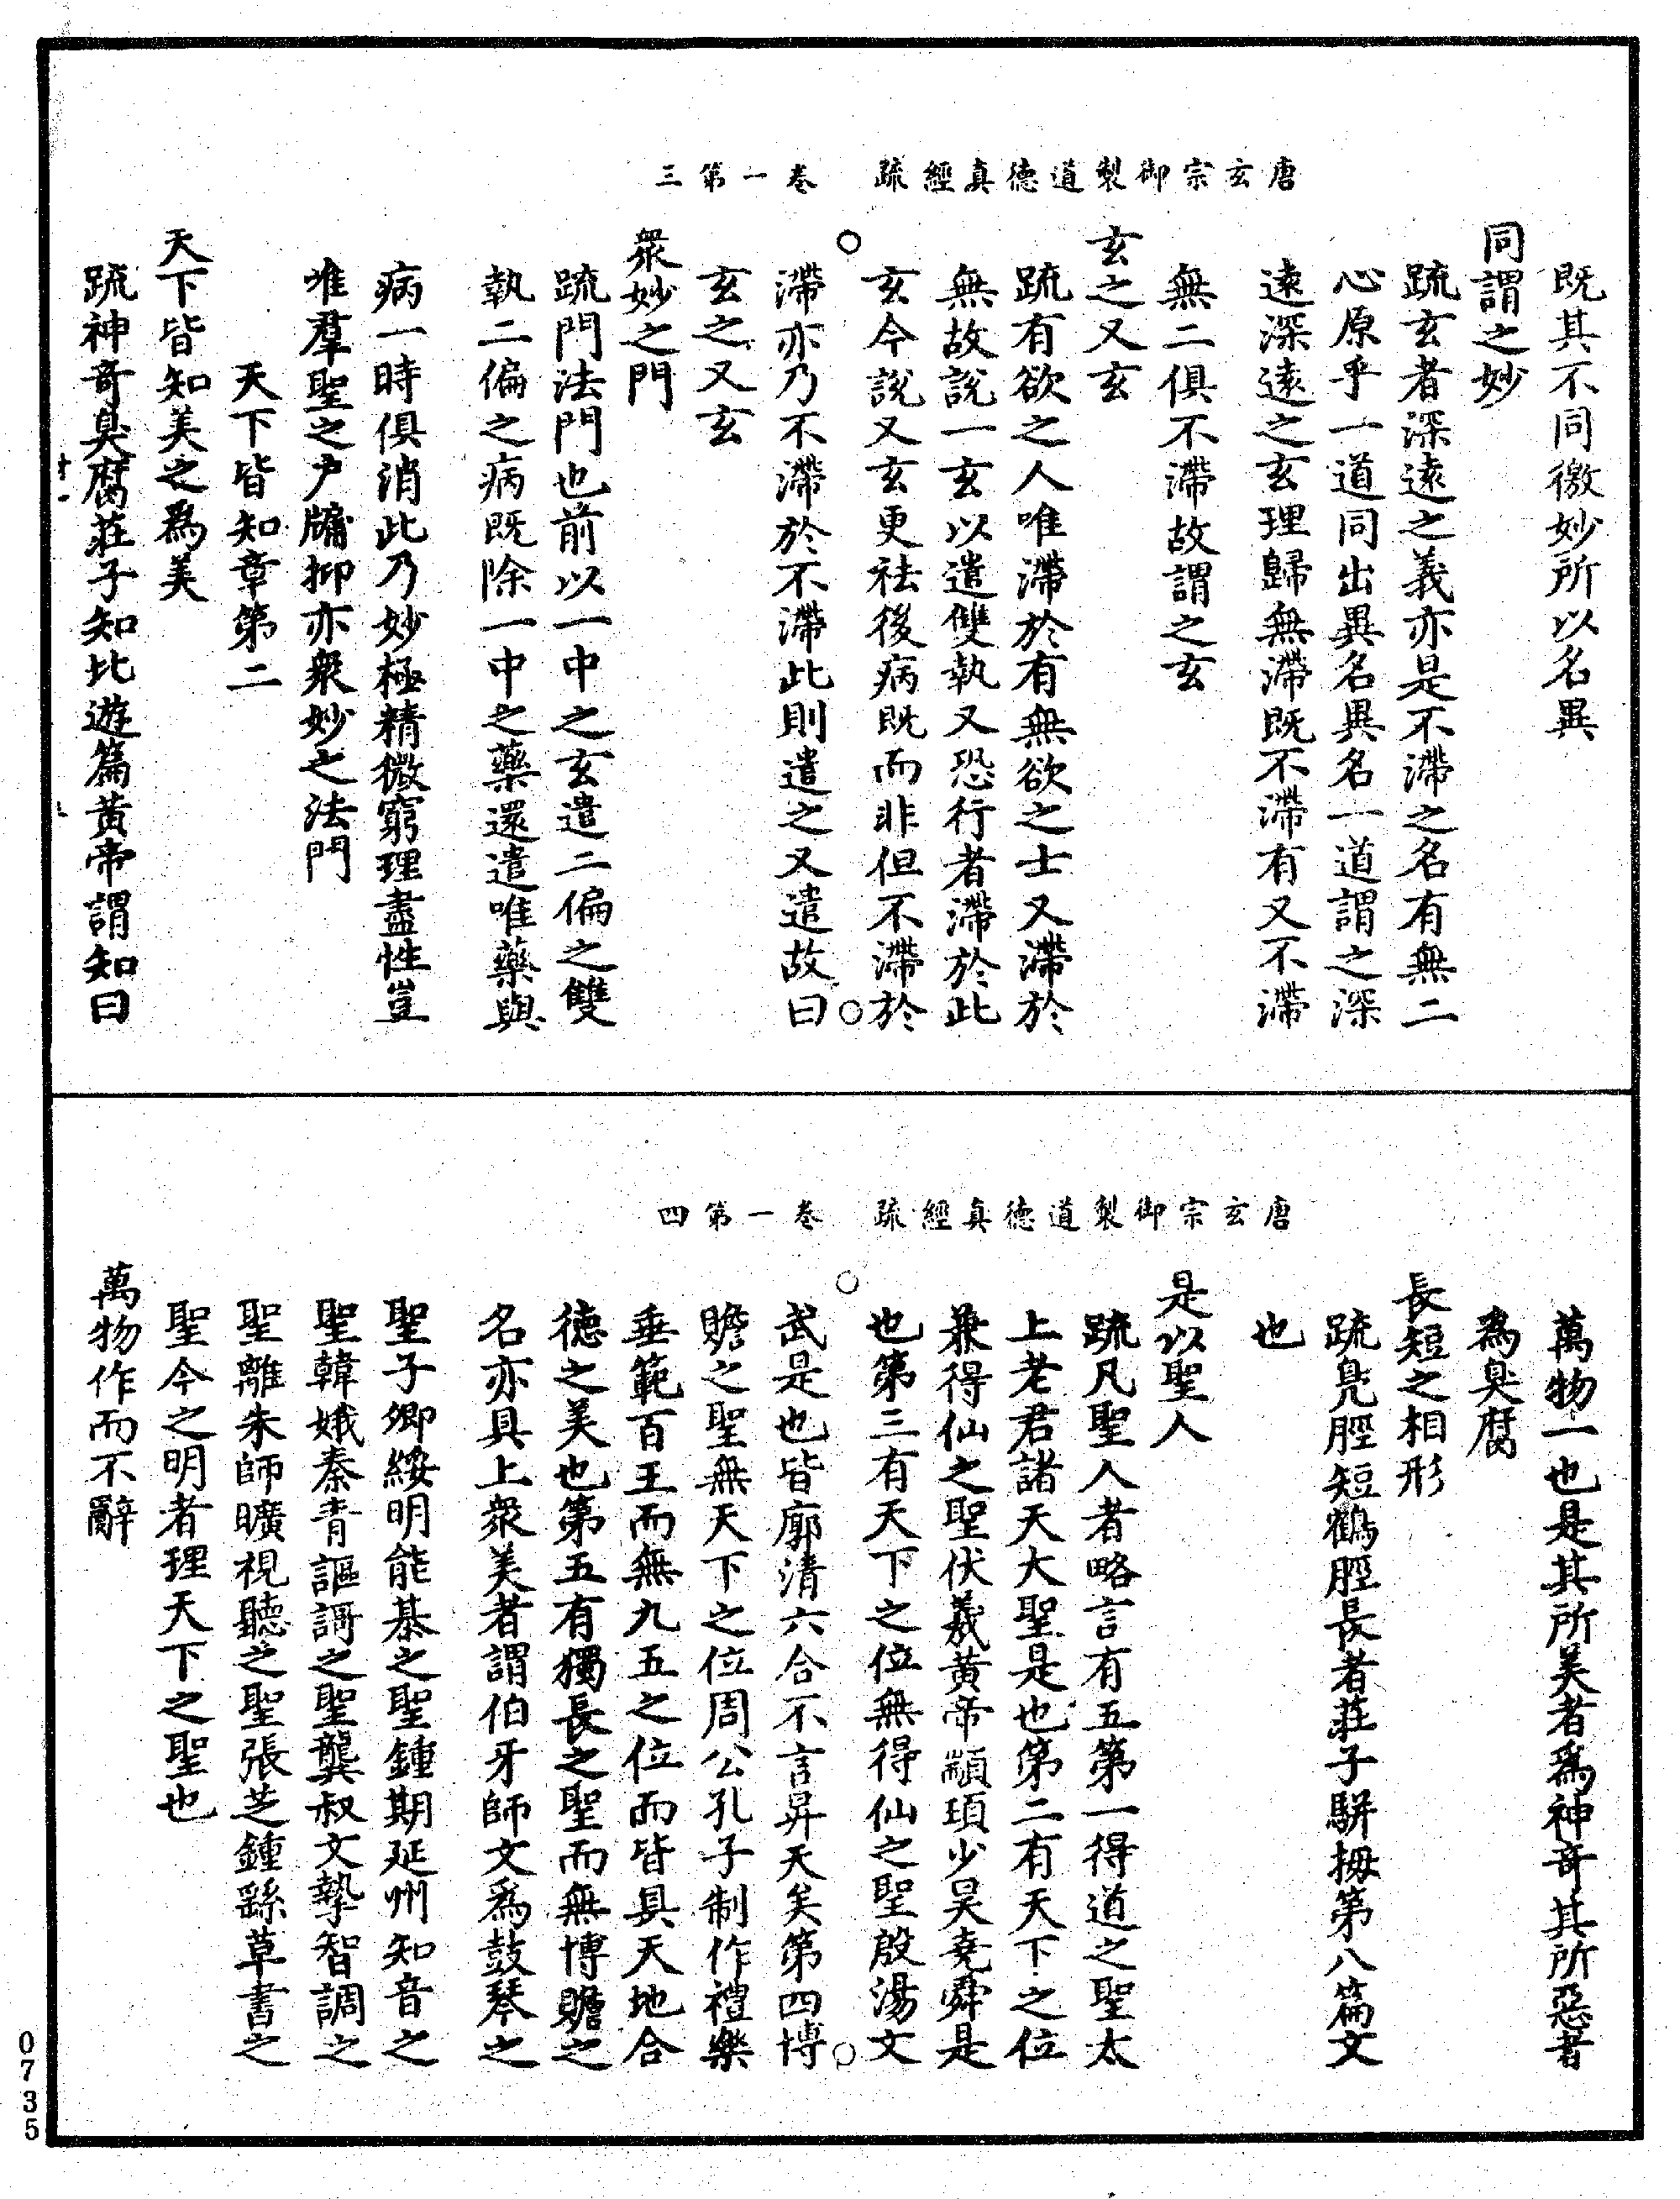 唐玄宗御製道德真經疏　卷一第三
既其不同徼妙所以名異
同謂之妙
疏玄者深遠之義亦是不滯之名有無二
心原乎一道同出異名異名一道謂之深
遠深遠之玄理歸無滯既不滯有又不滯
無二俱不滯故謂之玄
玄之又玄
疏有欲之人唯滯於有無欲之士又滯於
無故說一玄以遣雙執又恐行者滯於此
玄今說又玄更袪後病既而非但不滯於
滯亦乃不滯於不滯此則遣之又遣故曰
玄之又玄
衆妙之門
疏門法門也前以一中之玄遣二偏之雙
執二偏之病既除一中之藥還遣唯藥與
病一時俱消此乃妙極精微窮理盡性豈
唯羣聖之户牖抑亦衆妙之法門
天下皆知章第二
天下皆知美之爲美
疏神奇臭腐莊子知北遊篇黄帝謂知曰
唐玄宗御製道德真經疏　卷一第四
萬物一也是其所美者爲神奇其所惡者
爲臭腐
長短之相形
疏鳧脛短鶴脛長者莊子駢拇第八篇文
也
是以聖人
疏凡聖人者略言有五第一得道之聖太
上老君諸天大聖是也第二有天下之位
兼得仙之聖伏羲黄帝顓頊少昊堯舜是
也第三有天下之位無得仙之聖殷湯文
武是也皆廓清六合不言昇天矣第四博
贍之聖無天下之位周公孔子制作禮樂
垂範百王而無九五之位而皆具天地合
德之美也第五有獨長之聖而無博贍之
名亦具上衆美者謂伯牙師文爲鼓琴之
聖子卿綏明能棊之聖鍾期延州知音之
聖韓娥秦青謳謌之聖龔叔文摯智調之
聖離朱師曠視聽之聖張芝鍾繇草書之
聖今之明者理天下之聖也
萬物作而不辭
0735